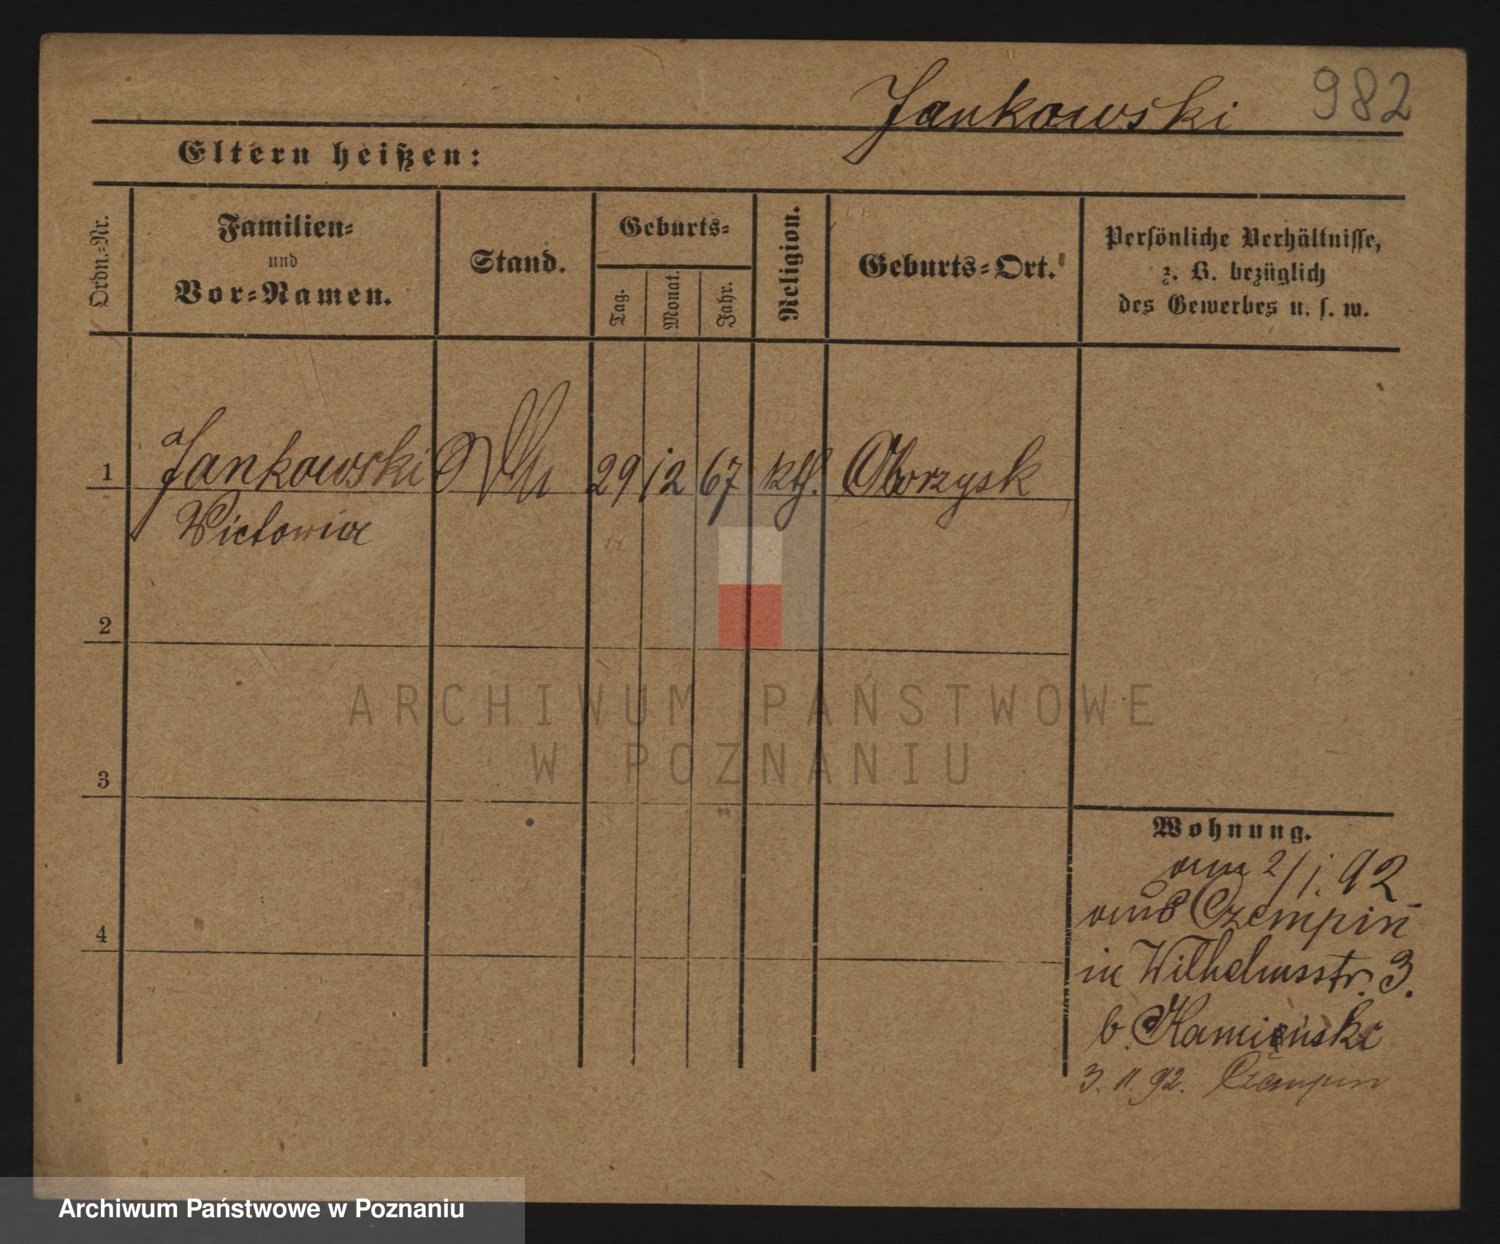 Jankowski 982
Eltern heißen:
Ordn.-Nr.
Familien-
und
Vor-Namen.
Stand.
Geburts-
Tag.
Monat.
Jahr.
Religion.
Geburts-Ort.
Persönliche Verhältnisse,
z. B. bezüglich
des Gewerbes u. s. w.
1 Jankowski 29 12 67 kth. Oborzysk
Victoria
2
3
4
Wohnung.
am 2/1. 92
aus Czempiń
in Wilhelmsstr. 3.
b. Kamieński
3. 11. 92. Czempin
ARCHIWUM PAŃSTWOWE
W POZNANIU
Archiwum Państwowe w Poznaniu